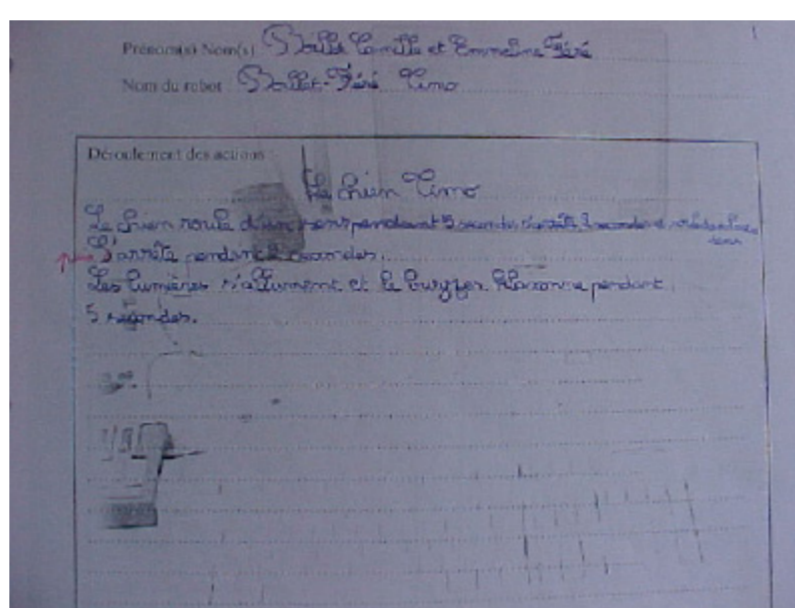 Prénom(s) Nom(s) Camille et Emmeline Féré
Nom du robot : Féré Timo
Déroulement des actions :
Le chien Timo
Le chien roule d'un sens pendant 5 secondes s'arrête 2 secondes et
sens
S'arrête pendant 2 secondes.
Les lumières s'allument et le buzzer klaxonne pendant
5 secondes.